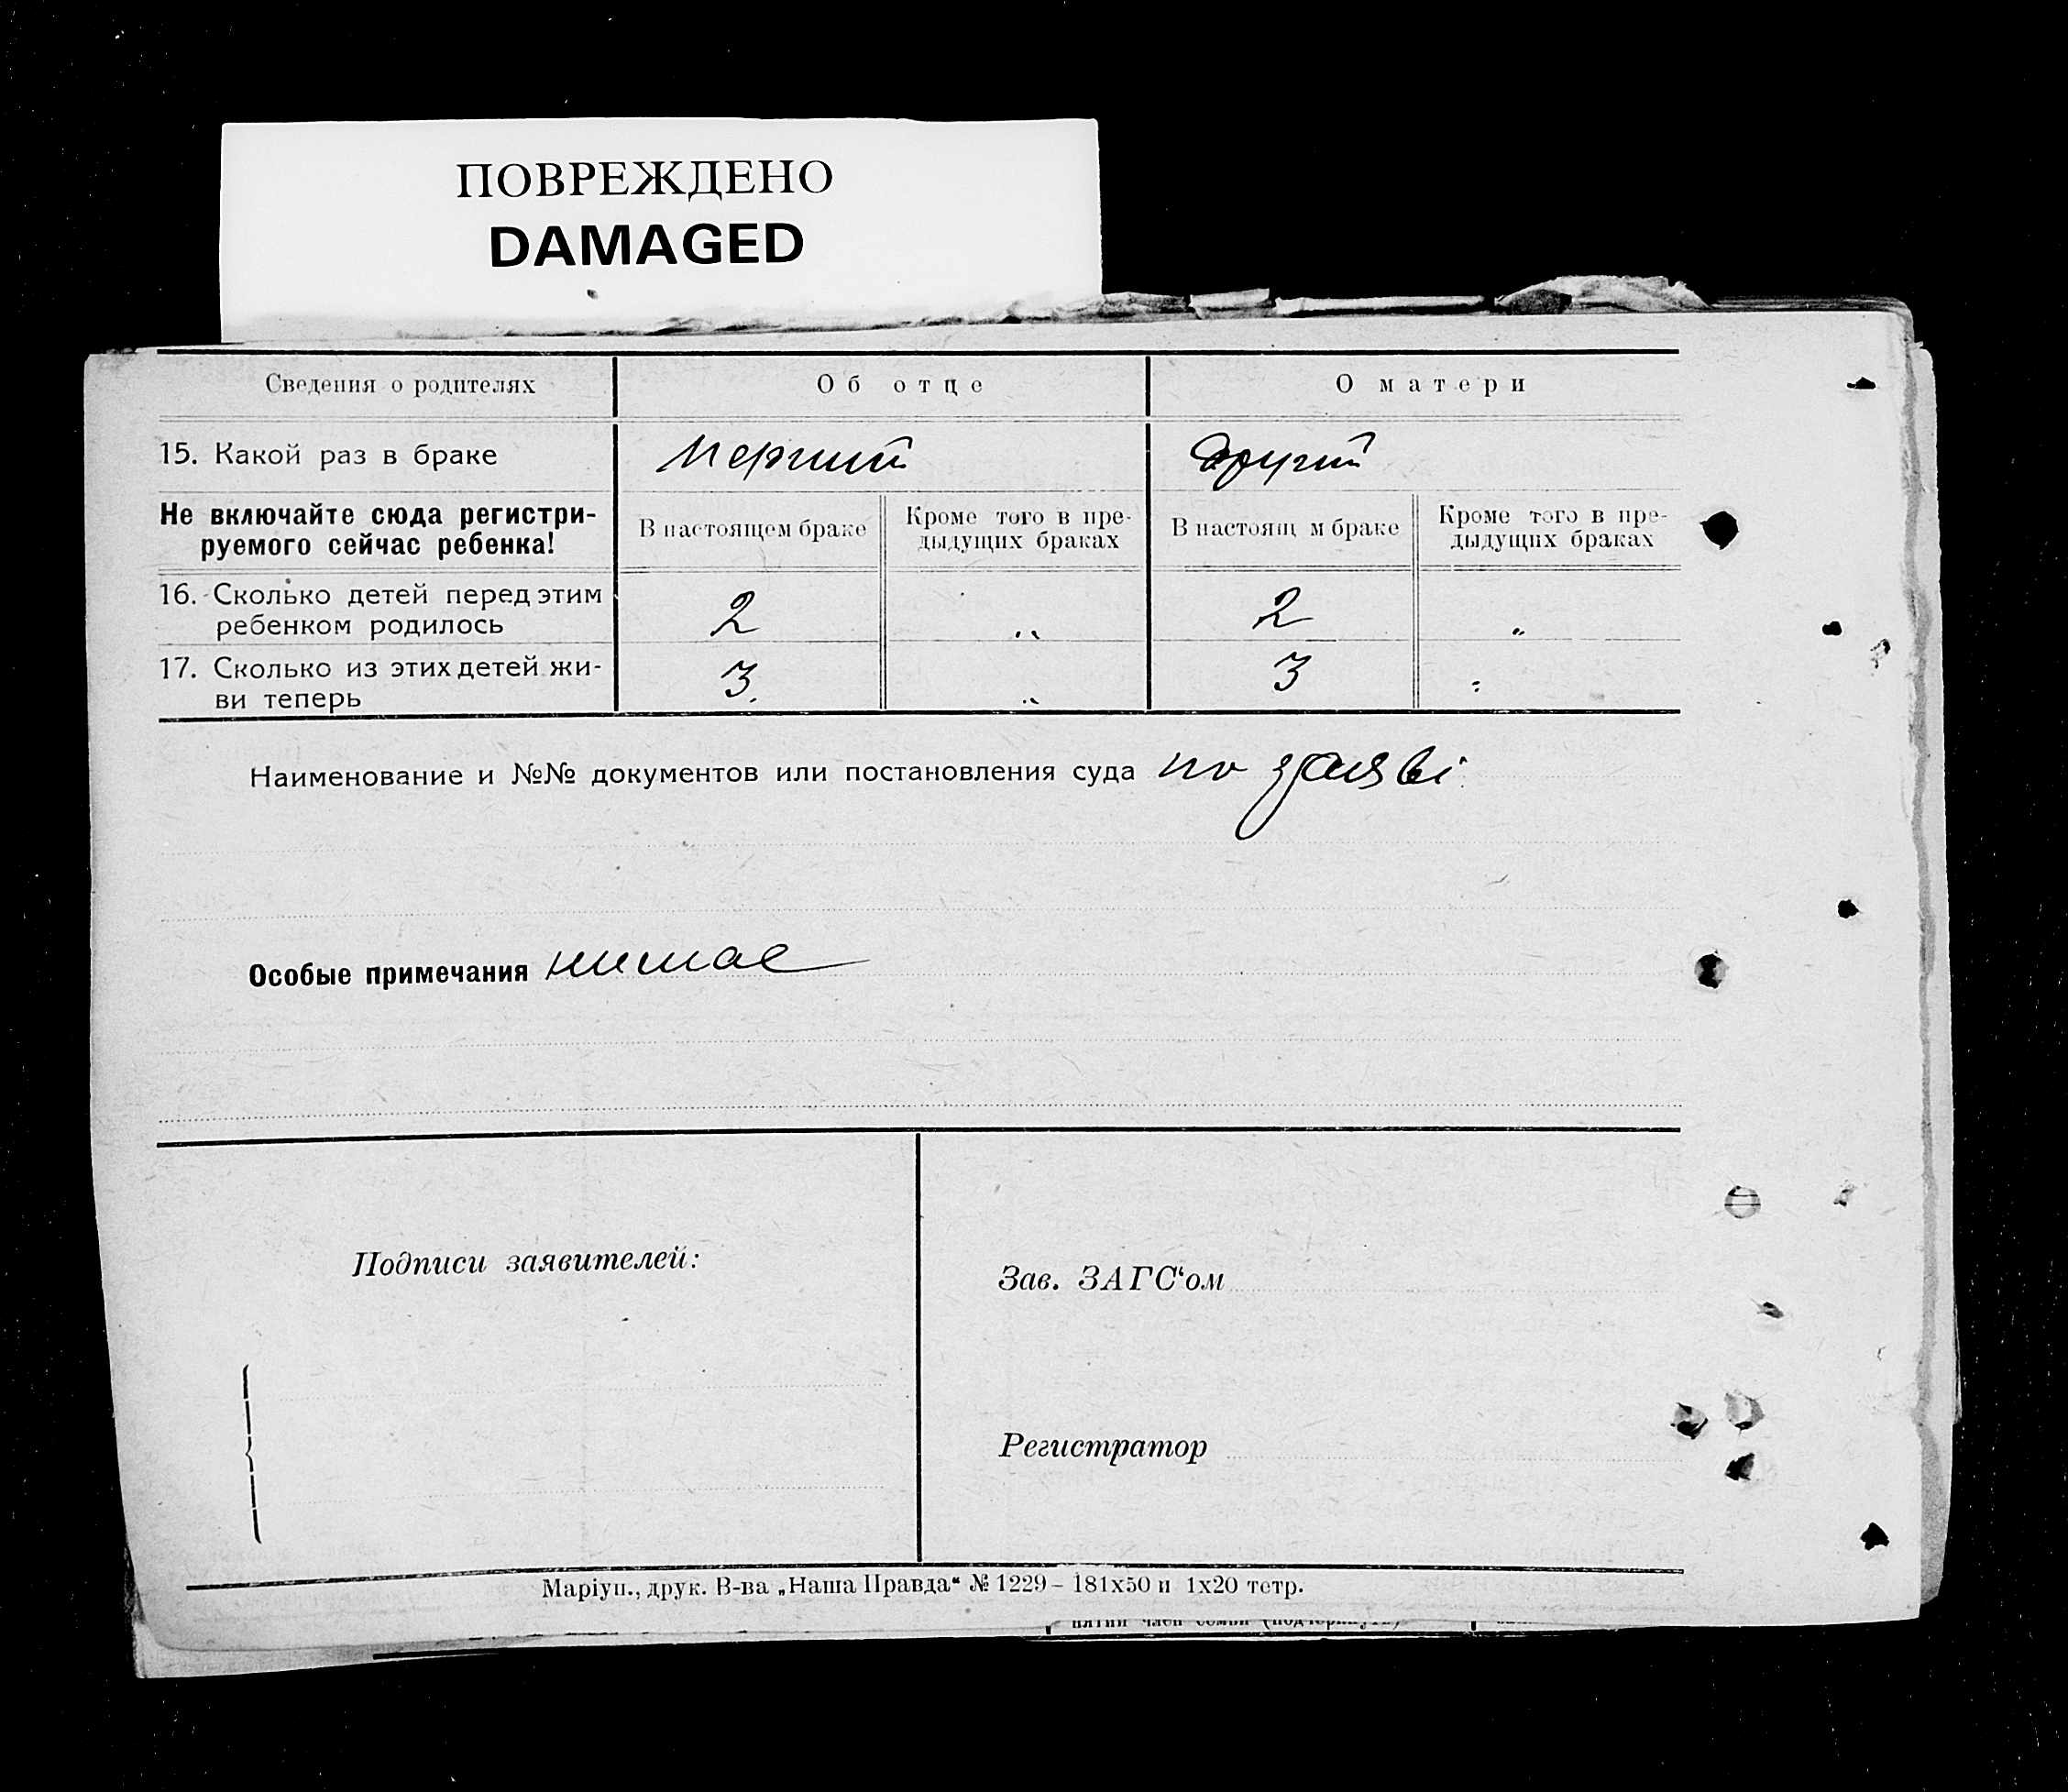 ПОВРЕЖДЕНО
DAMAGED
Сведения о родителях
Об отце
О матери
15. Какой раз в браке
перший
другий
Не включайте сюда регистри-
руемого сейчас ребенка!
В настоящем браке
Кроме того в пре-
дыдущих браках
В настоящ м браке
Кроме того в пре-
дыдущих браках
16. Сколько детей перед этим
ребенком родилось
2
"
2
"
17. Сколько из этих детей жи-
ви теперь
3
"
3
"
Наименование и №№ документов или постановления суда по заяві
Особые примечания немає
Подписи заявителей:
Зав. ЗАГС‘ом
Регистратор
Маріуп., друк. В-ва „Наша Правда“ № 1229 – 181х50 и 1х20 тетр.
пятий член семьи